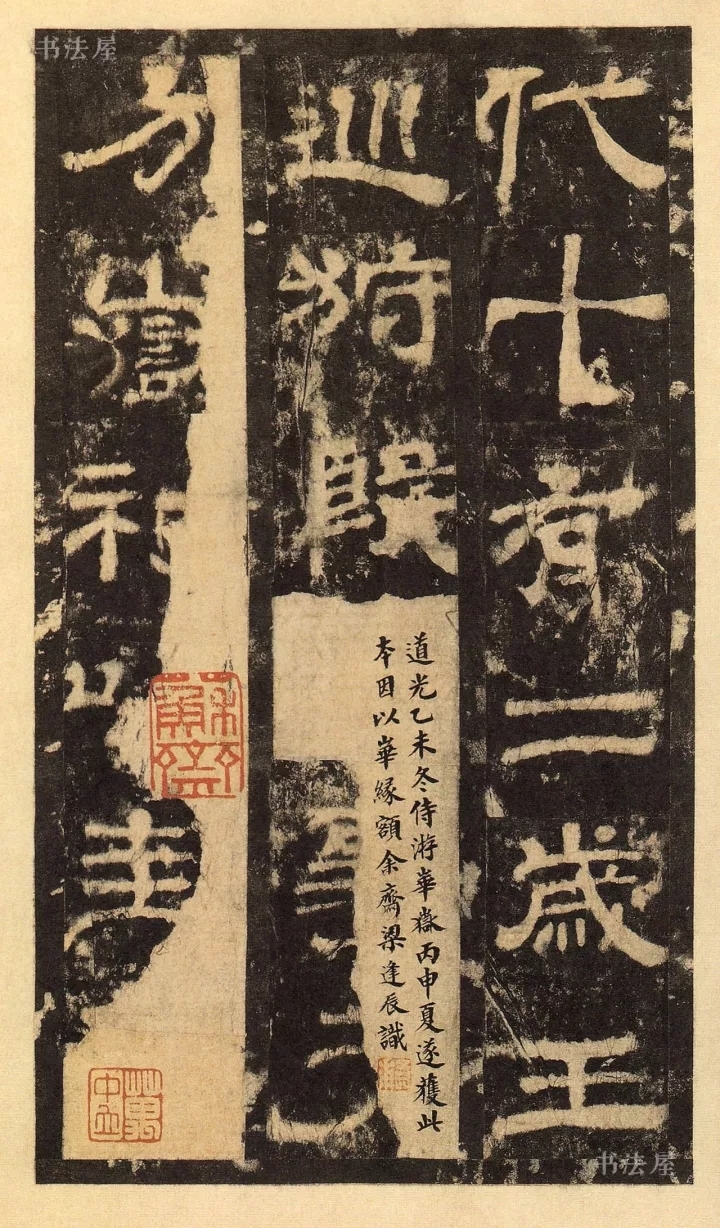 书法屋
代十有二歲王
巡狩殷
道光乙未冬侍游華嶽丙申夏遂獲此
本因以華緣額余齋梁逢辰識
方嶽祀以圭
蘇齋
书法屋